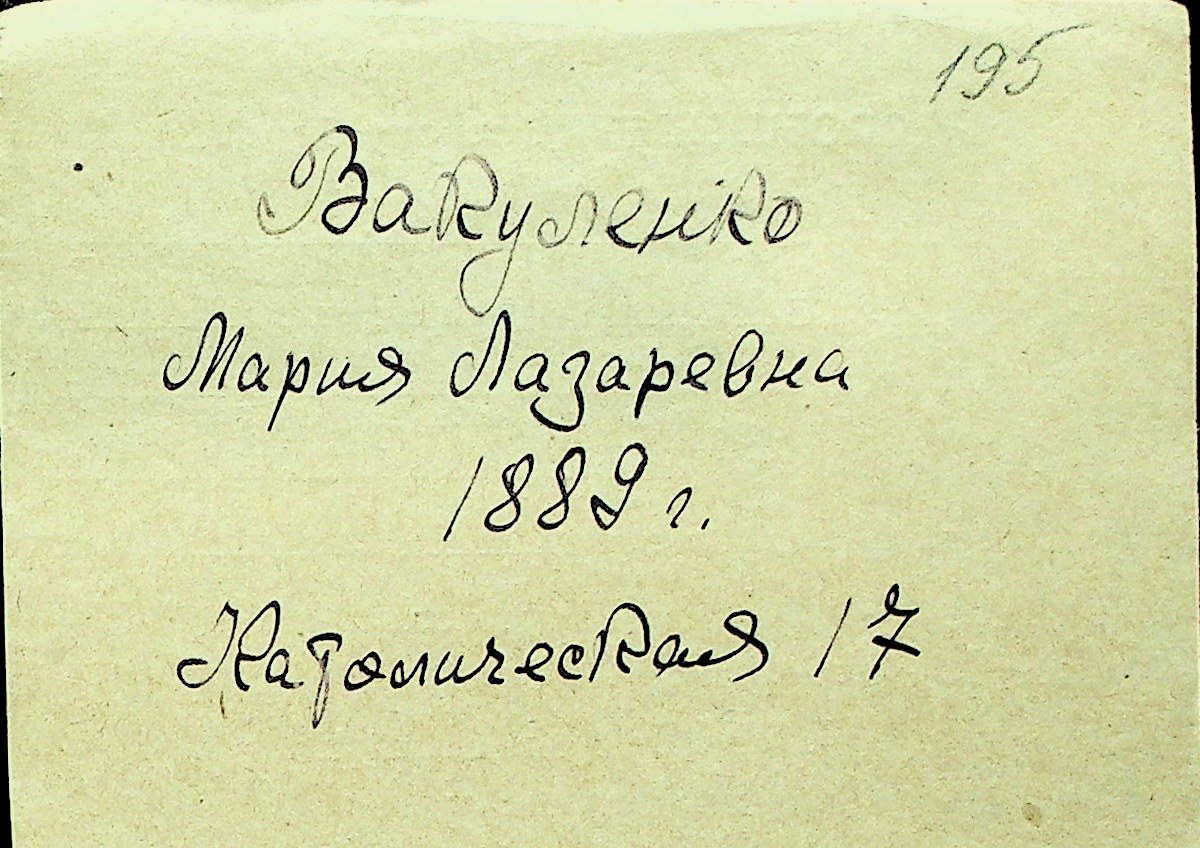 195
Вакуленко
Мария Лазаревна
1889 г.
Католическая 17